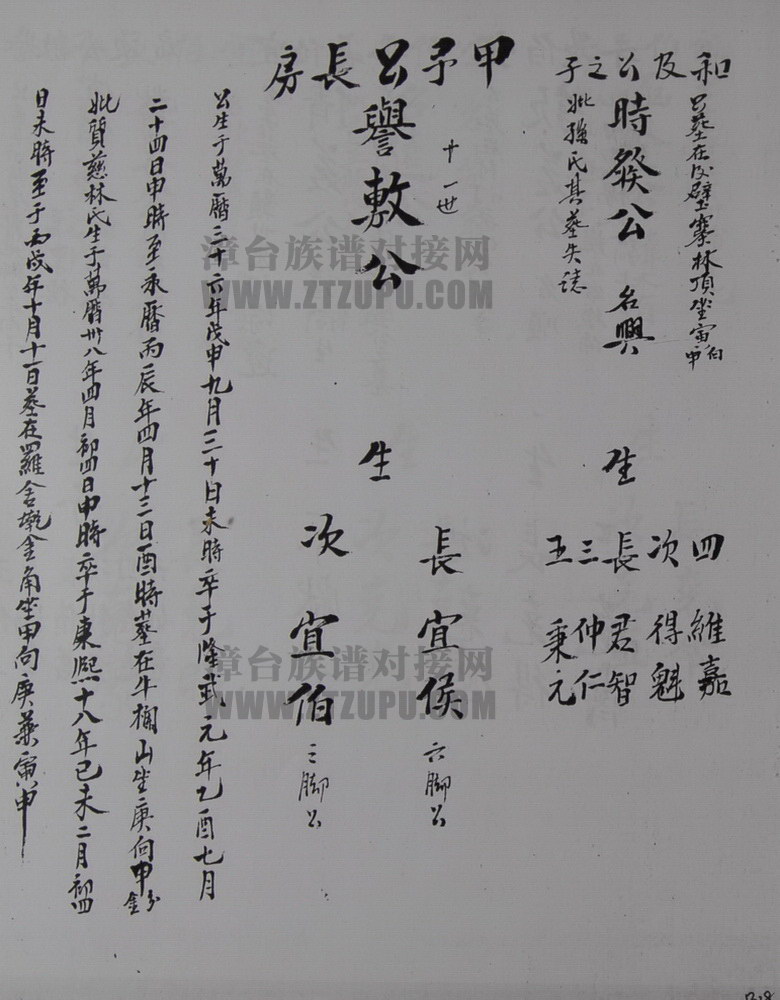 和及公之子
公墓在後壁寨林頂坐寅向申
時發公 名興
妣孫氏其墓失誌
生
四維嘉
次得魁
長君智
三仲仁
五秉元
甲予公長房
十一世
譽敷公
生
長宜侯 六脚公
次宜伯 三脚公
公生于萬曆三十六年戊申九月三十日未時卒于隆武元年乙酉七月
二十四日申時至永曆丙辰年四月十三日酉時墓在牛欄山坐庚向甲分金
妣質慈林氏生于萬曆卅八年四月初四日申時卒于康熙十八年己未二月初四
日未時至于丙戌年十月十一日墓在羅舍墘金角坐甲向庚兼寅申
漳台族谱对接网
WWW.ZTZUPU.COM
漳台族谱对接网
WWW.ZTZUPU.COM